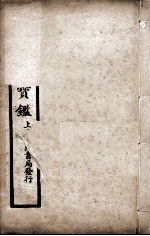 寳鑑
上
書局發行